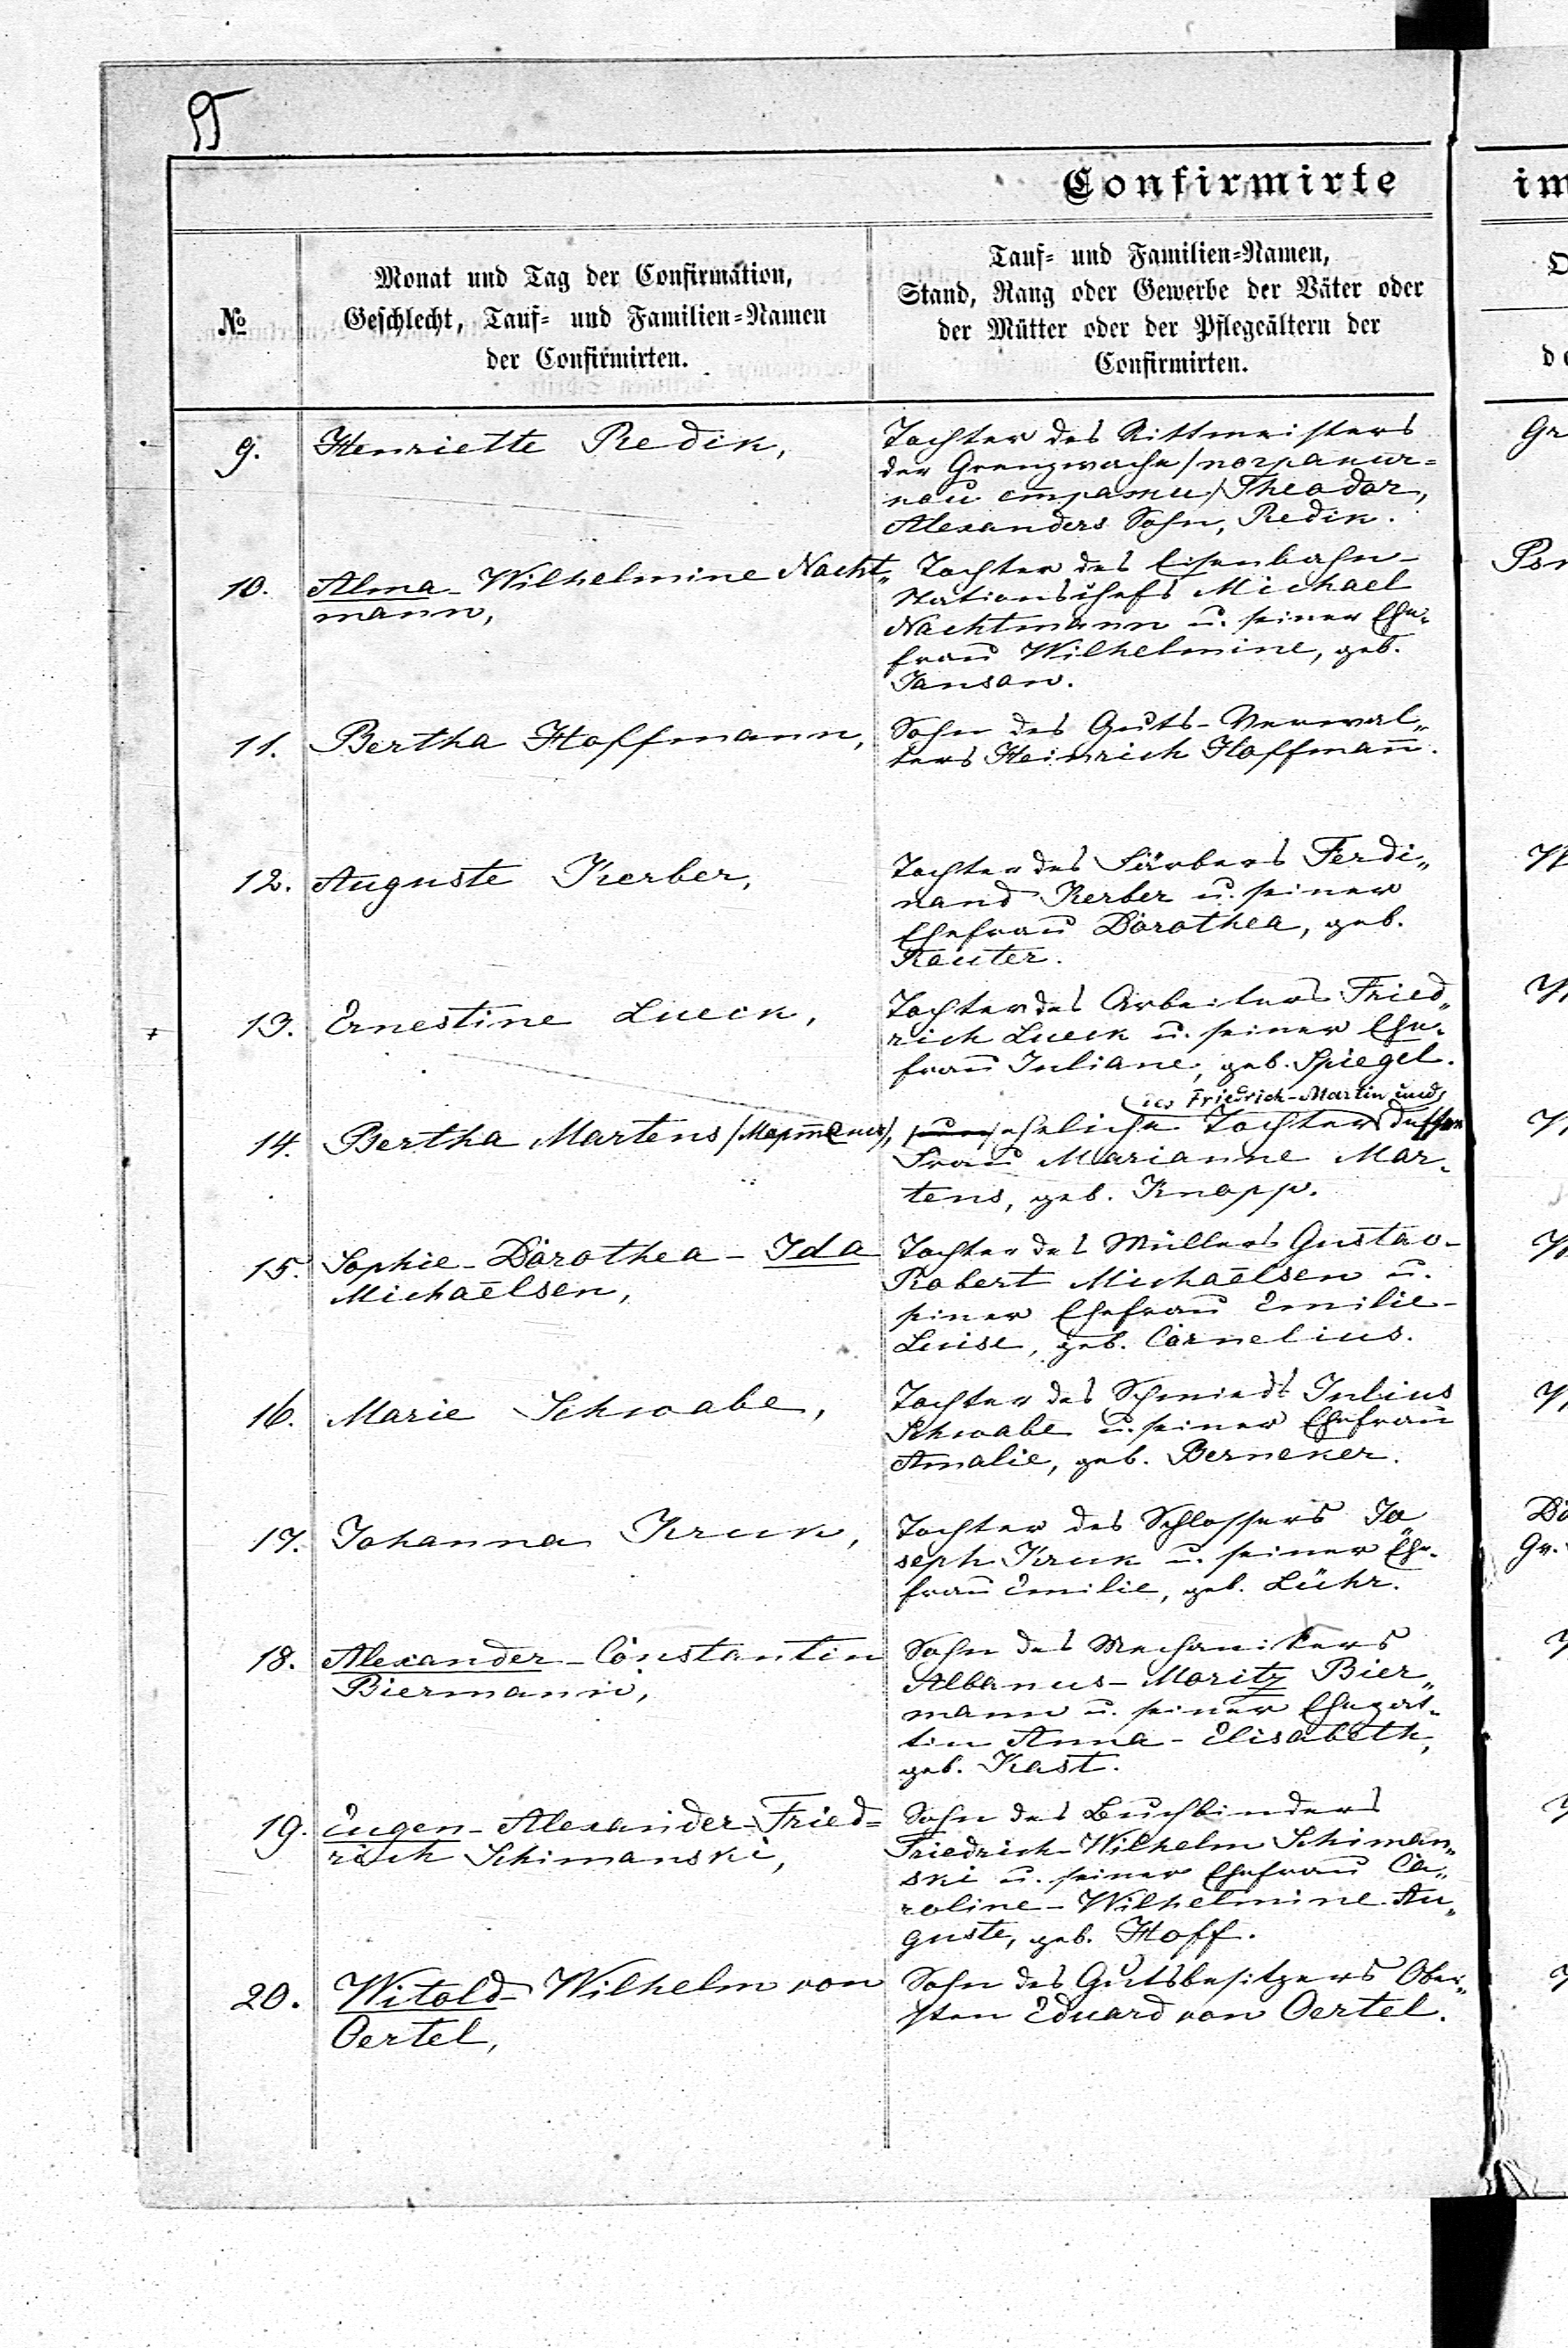 Confirmirte
im
№
Monat und Tag der Confirmation,
Geschlecht, Tauf- und Familien-Namen
der Confirmirten.
Tauf- und Familien-Namen,
Stand, Rang oder Gewerbe der Väter oder
der Mütter oder der Pflegeältern der
Confirmirten.
9. Henriette Redik,
Tochter des Rittmeisters
der Grenzwache /пограничной
стражи/ Theodor,
Alexanders Sohn, Redik.
10. Alma-Wilhelmine Nacht„
mann,
Tochter des Eisenbahn-
Stationschefs Michael
Nachtmann u. seiner Ehe-
frau Wilhelmine, geb.
Janson.
11. Bertha Hoffmann,
Sohn des Guts-Verwal„
ters Heinrich Hoffmann̄.
12. Auguste Kerber,
Tochter des Färbers Ferdi„
nand Kerber u. seiner
Ehefrau Dorothea, geb.
Kauter.
13. Ernestine Lueck,
Tochter des Arbeiters Fried„
rich Lueck u. seiner Ehe-
frau Juliane, geb. Spiegel.
14. Bertha Martens /Мартенс/,
des Friedrich-Martin und
eheliche Tochter dessen
Frau Marianne Mar-
tens, geb. Knopp.
15. Sophie-Dorothea-Ida
Michaëlsen,
Tochter des Müllers Gustav-
Robert Michaëlsen u.
seiner Ehefrau Emilie-
Luise, geb. Cornelius.
16. Marie Schwabe,
Tochter des Schmieds Julius
Schwabe u. seiner Ehefrau
Amalie, geb. Berneker.
17. Johanna Kruk,
Tochter des Schlossers Jo„
seph Kruk u. seiner Ehe-
frau Emilie, geb. Lühr.
18. Alexander-Constantin
Biermann,
Sohn des Mechanikers
Albanus-Moritz Bier„
mann u. seiner Ehegat-
tin Anna-Elisabeth,
geb. Kast.
19. Eugen-Alexander-Fried=
rich Schimanski,
Sohn des Buchbinders
Friedrich-Wilhelm Schiman„
ski u. seiner Ehefrau Ca„
roline-Wilhelmine-Au„
guste, geb. Hoff.
20. Witold-Wilhelm von
Oertel,
Sohn des Gutsbesitzers Ober„
sten Eduard von Oertel.